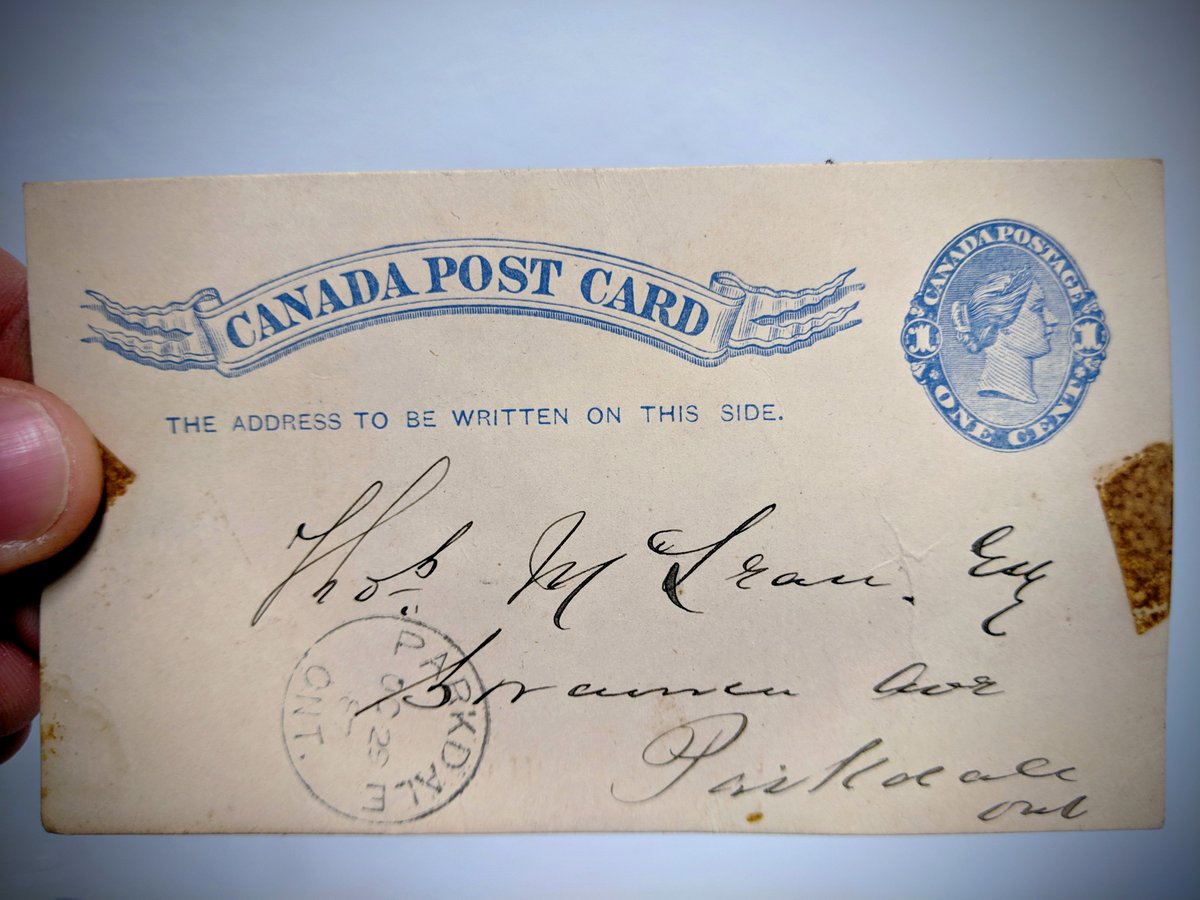 CANADA POST CARD
CANADA POSTAGE
1 1
ONE CENT
THE ADDRESS TO BE WRITTEN ON THIS SIDE.
Thos. Esq
Ave
Parkdale
Ont
PARKDALE
OC 29
ONT.